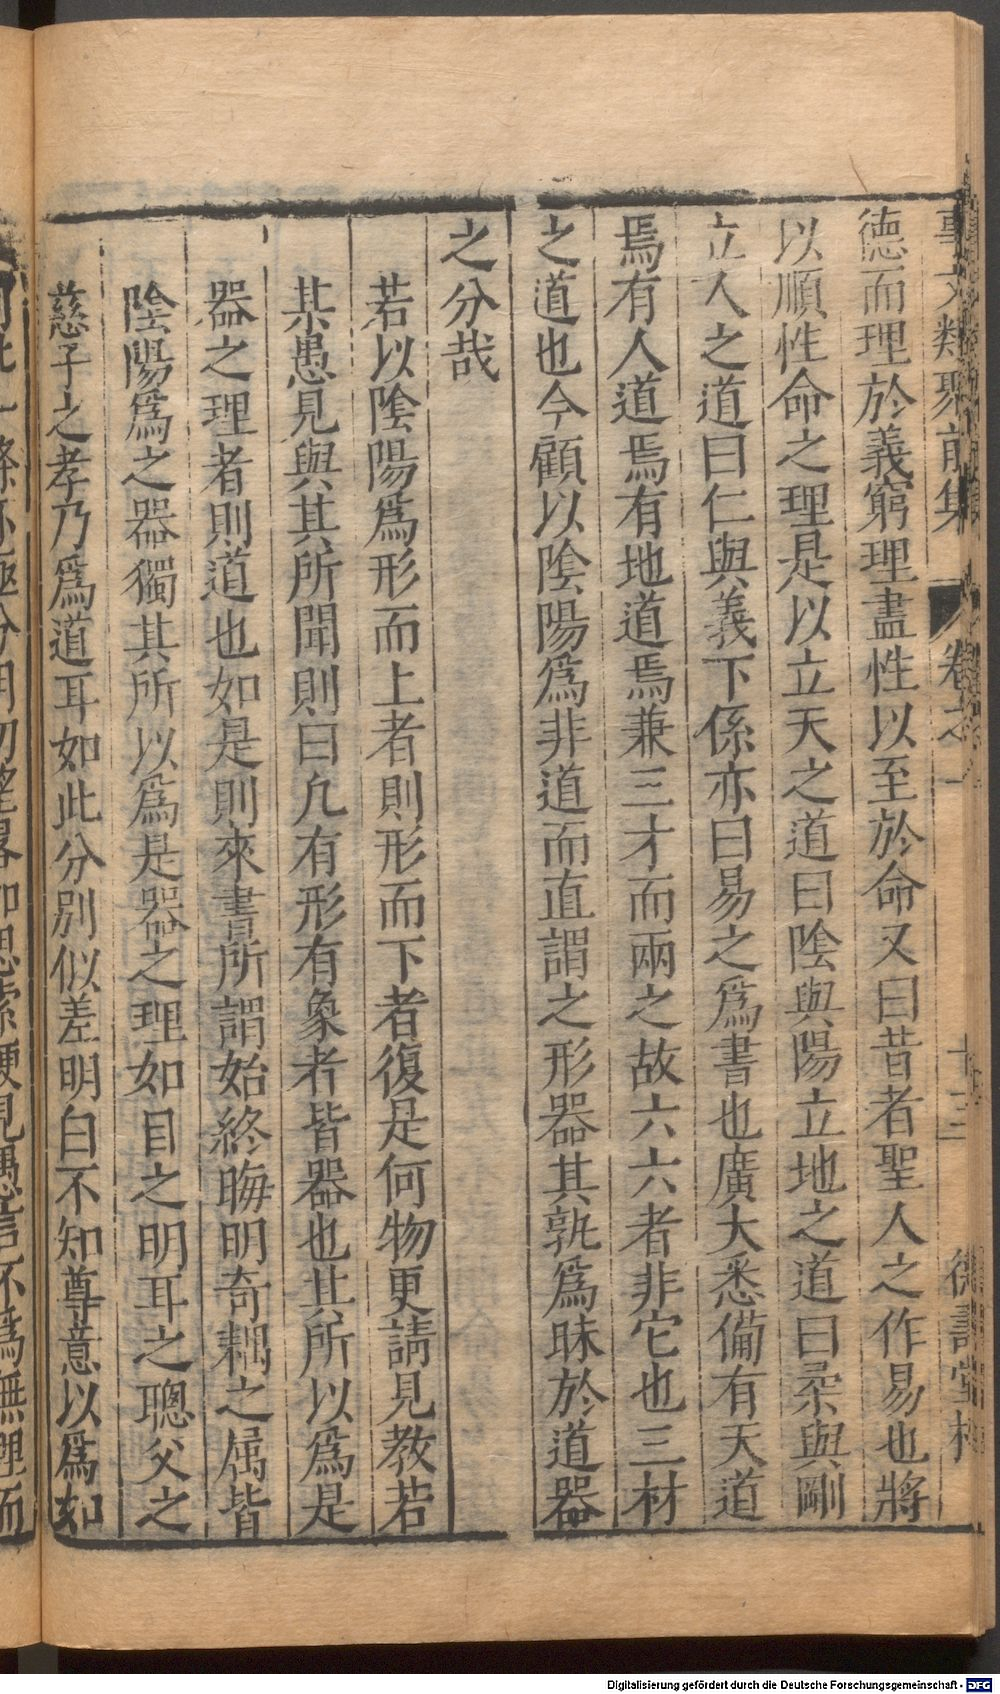 事文類聚前集 卷之一 十三 德壽堂梓
德而理於義窮理盡性以至於命又曰昔者聖人之作易也將
以順性命之理是以立天之道曰陰與陽立地之道曰柔與剛
立人之道曰仁與義下係亦曰易之爲書也廣大悉備有天道
焉有人道焉有地道焉兼三才而兩之故六六者非它也三材
之道也今顧以陰陽爲非道而直謂之形器其孰爲昧於道器
之分哉
若以陰陽爲形而上者則形而下者復是何物更請見教若
某愚見與其所聞則曰凡有形有象者皆器也其所以爲是
器之理者則道也如是則來書所謂始終晦明奇耦之属皆
陰陽爲之器獨其所以爲是器之理如目之明耳之聰父之
慈子之孝乃爲道耳如此分別似差明白不知尊意以爲如
何此一條亦極分明切望畧加思索便見愚言不爲無理而
Digitalisierung gefördert durch die Deutsche Forschungsgemeinschaft - DFG